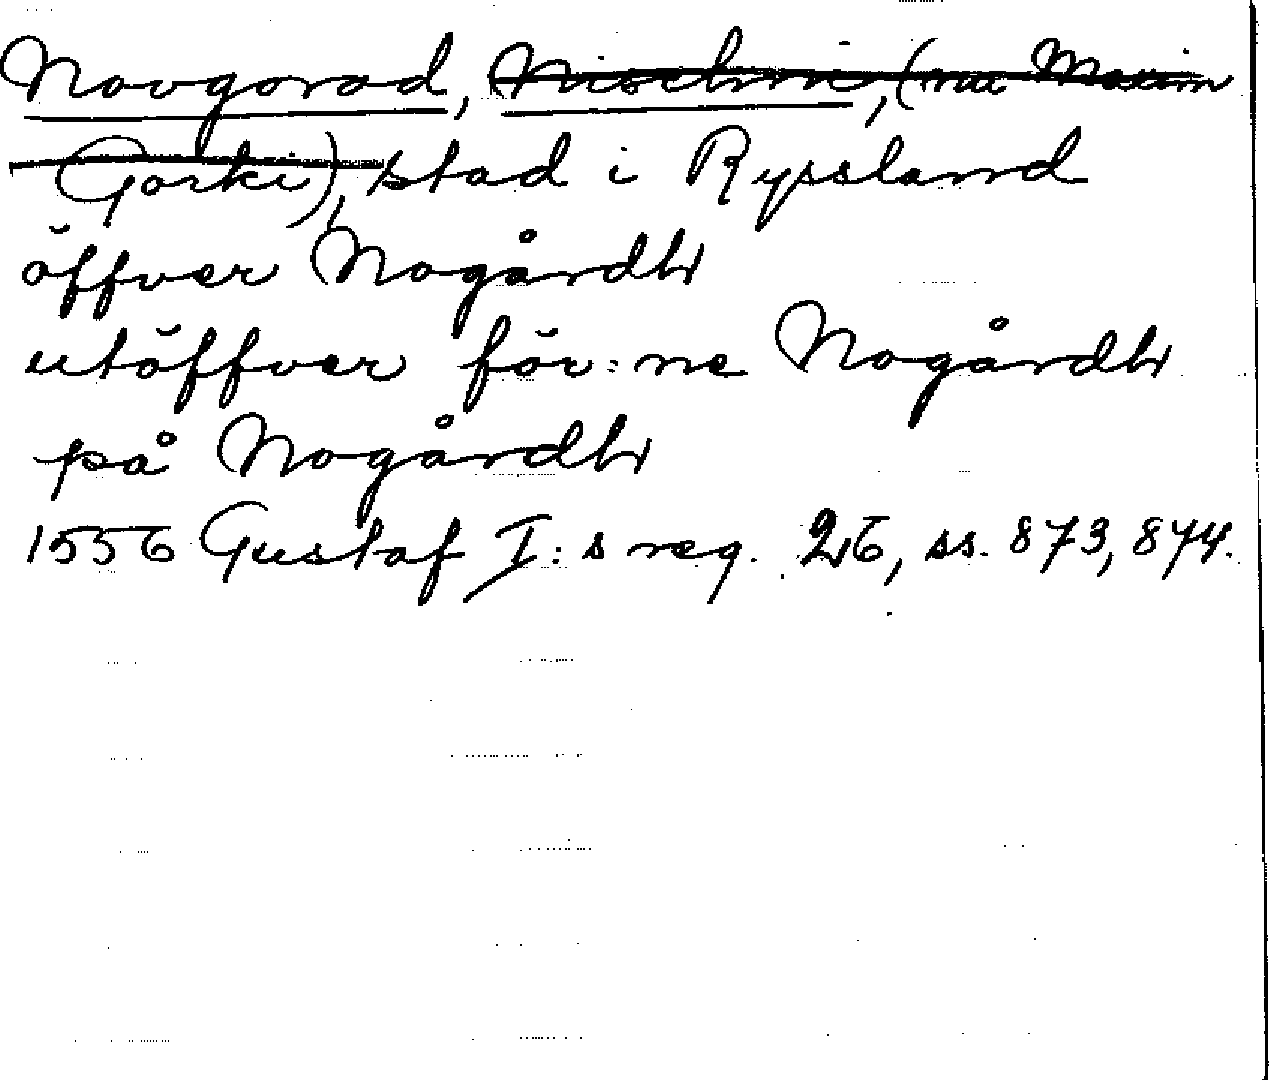 Novgorod, Nischnii, (nu Maxim
Gorki), stad i Ryssland
öffver Nogårdh
utöffver för:ne Nogårdh
på Nogårdh
1556 Gustaf I:s reg. 26, ss. 873, 874.